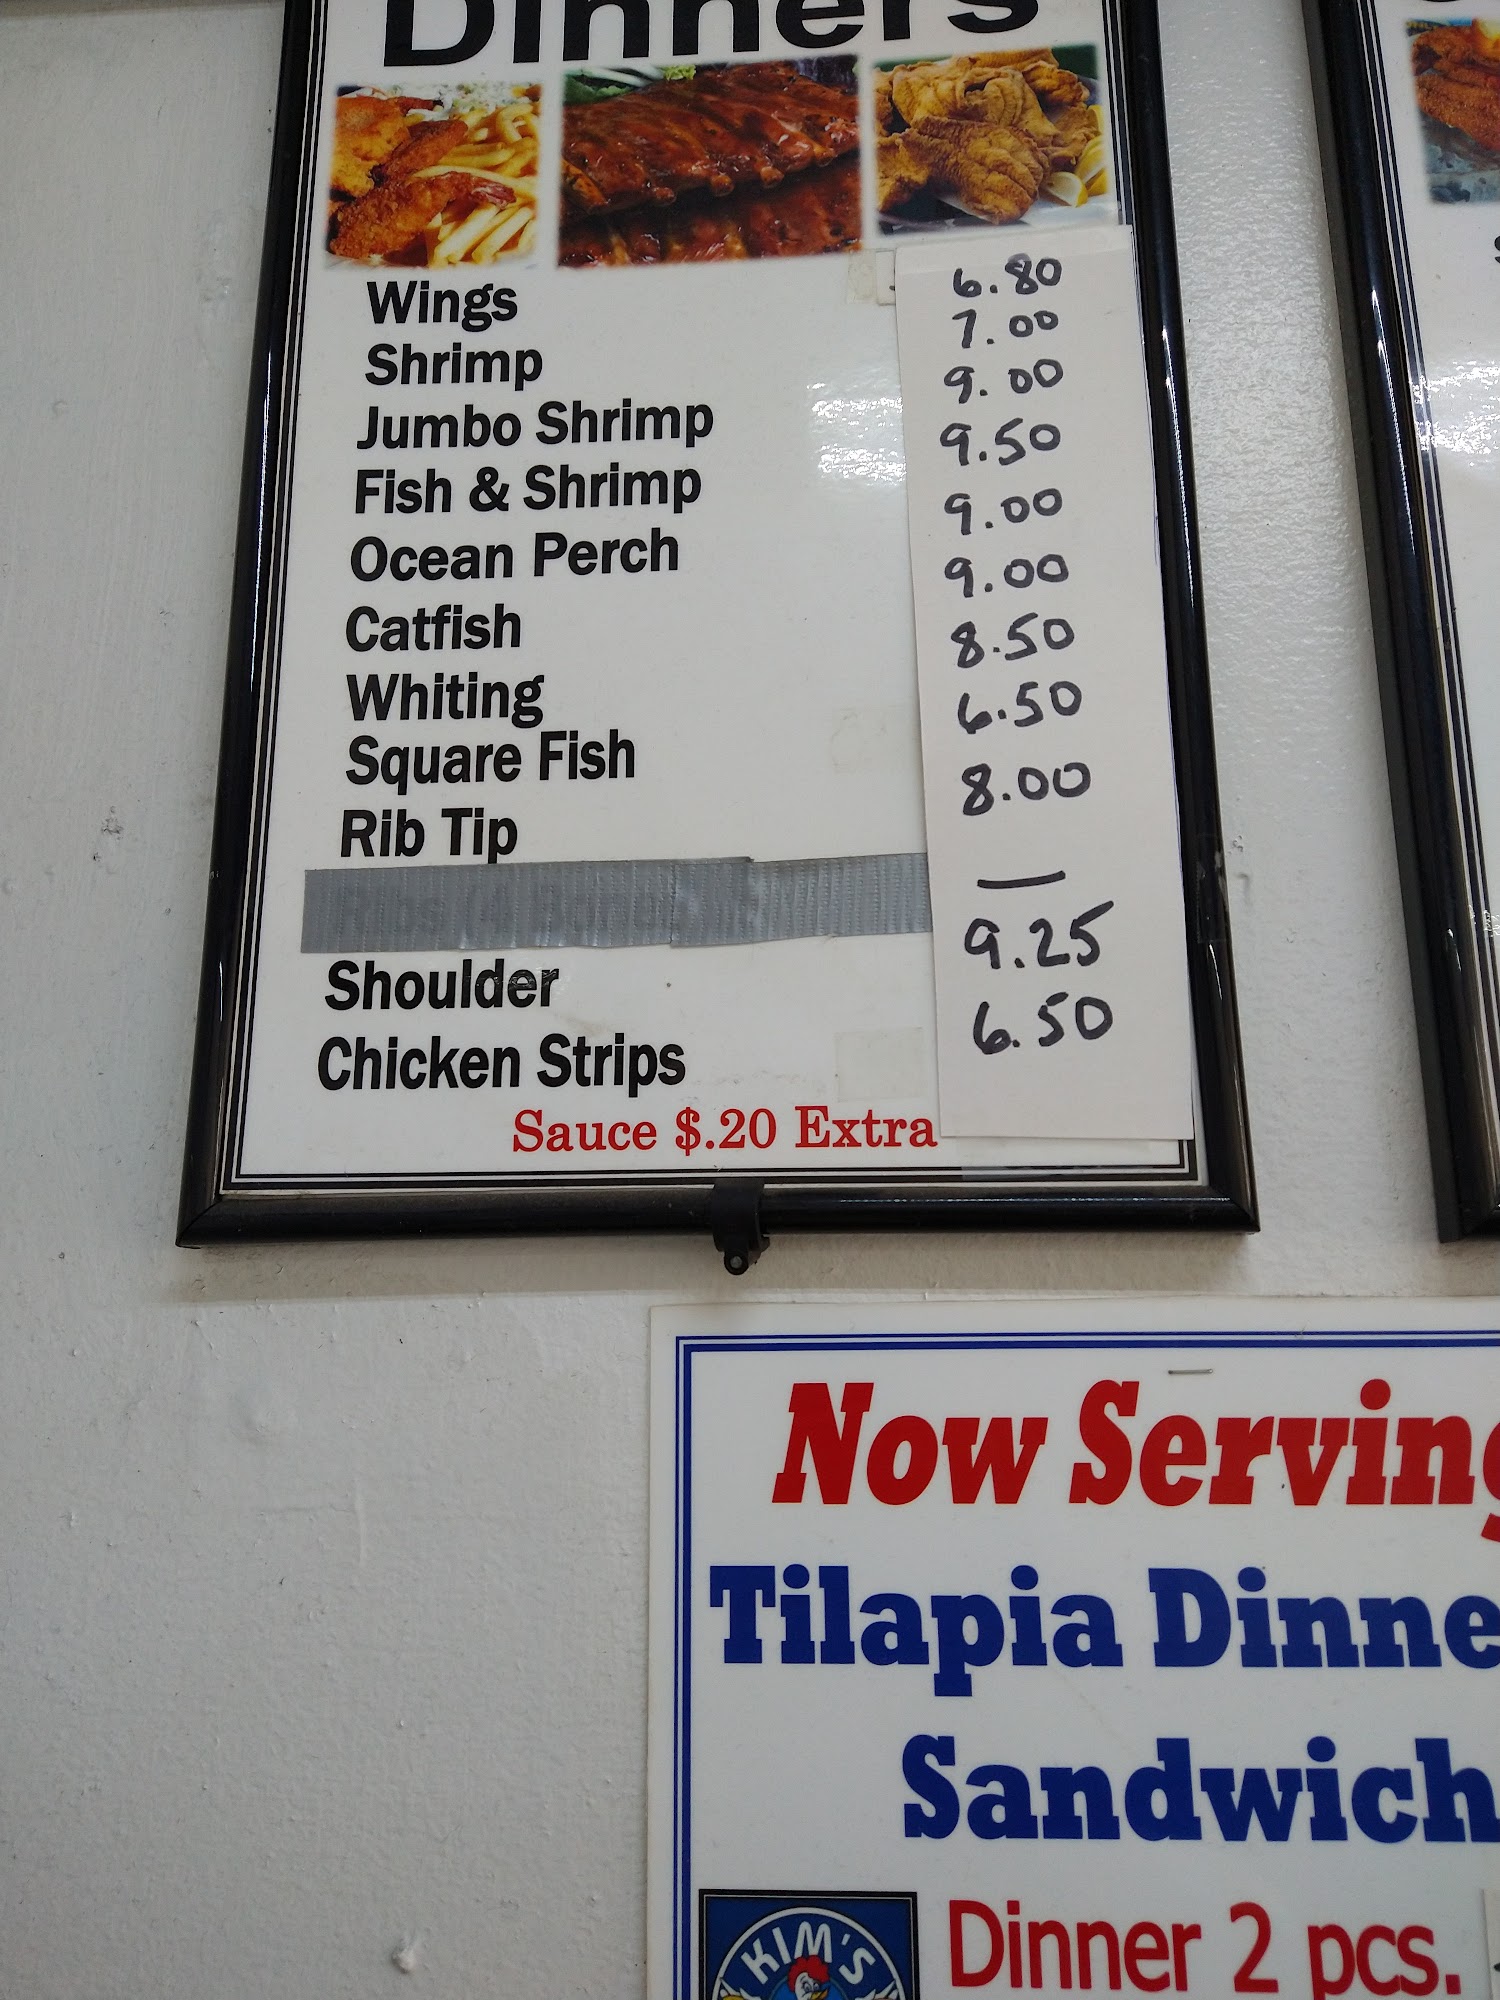 Dinners
Wings 6.80
Shrimp 7.00
Jumbo Shrimp 9.00
Fish & Shrimp 9.50
Ocean Perch 9.00
Catfish 9.00
Whiting 8.50
Square Fish 6.50
Rib Tip 8.00
—
Shoulder 9.25
Chicken Strips 6.50
Sauce $.20 Extra
Now Serving
Tilapia Dinne
Sandwich
KIM'S
Dinner 2 pcs.